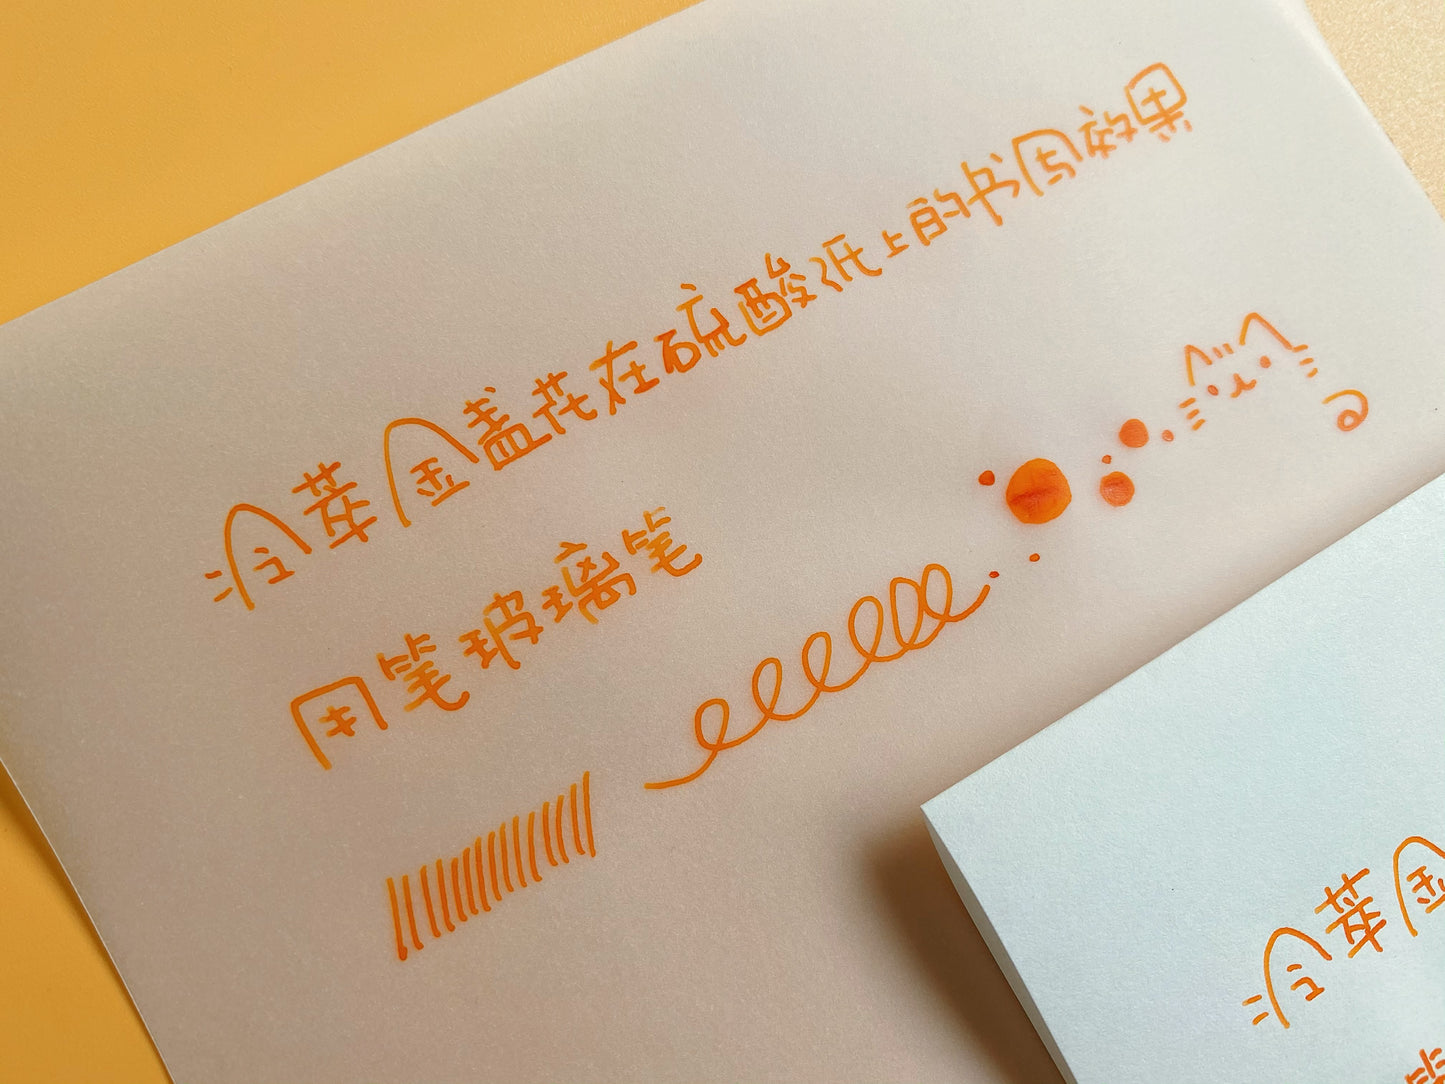 冷萃金盏花在硫酸纸上的书写效果
用笔玻璃笔
冷萃金